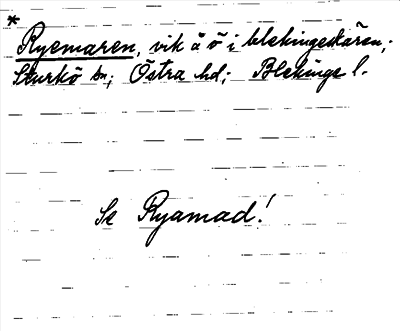 *
Ryemaren, vik å ö i blekingeskären;
Sturkö sn; Östra hd; Blekinge l.
Se Ryamad!